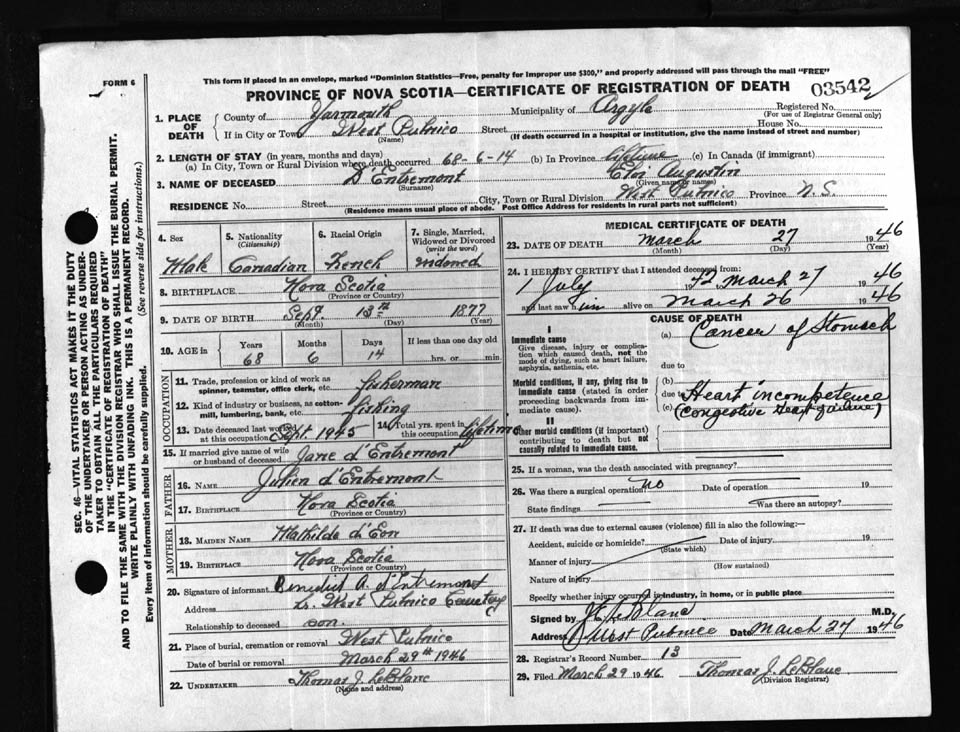 FORM 6
This form if placed in an envelope, marked "Dominion Statistics—Free, penalty for improper use $300," and properly addressed will pass through the mail "FREE"
PROVINCE OF NOVA SCOTIA—CERTIFICATE OF REGISTRATION OF DEATH
03542
1. PLACE OF DEATH County of Yarmouth Municipality of Argyle Registered No.
(For use of Registrar General only)
If in City or Town West Pubnico Street House No.
(Name) (If death occurred in a hospital or institution, give the name instead of street and number)
2. LENGTH OF STAY (in years, months and days)
(a) In City, Town or Rural Division where death occurred 68-6-14 (b) In Province lifetime (c) In Canada (if immigrant)
3. NAME OF DECEASED D'Entremont Eloi Augustin
(Surname) (Given name or names)
RESIDENCE No. Street City, Town or Rural Division West Pubnico Province N.S.
(Residence means usual place of abode. Post Office Address for residents in rural parts not sufficient)
4. Sex
Male
5. Nationality
(Citizenship)
Canadian
6. Racial Origin
French
7. Single, Married, Widowed or Divorced
(write the word)
Widowed
8. BIRTHPLACE Nova Scotia
(Province or Country)
9. DATE OF BIRTH Sept. 13 1877
(Month) (Day) (Year)
10. AGE in Years Months Days If less than one day old
68 6 14 hrs. or min.
OCCUPATION
11. Trade, profession or kind of work as
spinner, teamster, office clerk, etc. fisherman
12. Kind of industry or business, as cotton-
mill, lumbering, bank, etc. fishing
13. Date deceased last worked
at this occupation Sept. 1945
14. Total yrs. spent in
this occupation lifetime
15. If married give name of wife
or husband of deceased Jane d'Entremont
FATHER
16. NAME Julien d'Entremont
17. BIRTHPLACE Nova Scotia
(Province or Country)
MOTHER
18. MAIDEN NAME Mathilde d'Eon
19. BIRTHPLACE Nova Scotia
(Province or Country)
20. Signature of informant Benedict A. d'Entremont
Address West Pubnico Cemetery
Relationship to deceased son.
21. Place of burial, cremation or removal West Pubnico
Date of burial or removal March 29th 1946
22. UNDERTAKER Thomas J. LeBlanc
(Name and address)
MEDICAL CERTIFICATE OF DEATH
23. DATE OF DEATH March 27 1946
(Month) (Day) (Year)
24. I HEREBY CERTIFY that I attended deceased from:
1 July 1942, March 27 1946
and last saw him alive on March 26 1946
CAUSE OF DEATH
I
Immediate cause
Give disease, injury or complication which caused death, not the mode of dying, such as heart failure, asphyxia, asthenia, etc.
(a) Cancer of Stomach
due to
Morbid conditions, if any, giving rise to immediate cause (stated in order proceeding backwards from immediate cause).
(b)
due to Heart incompetence
(c) (Congestive Heart Failure)
II
Other morbid conditions (if important) contributing to death but not causally related to immediate cause.
25. If a woman, was the death associated with pregnancy?
26. Was there a surgical operation? No Date of operation 19
State findings Was there an autopsy?
27. If death was due to external causes (violence) fill in also the following:—
Accident, suicide or homicide? Date of injury 19
(State which)
Manner of injury
(How sustained)
Nature of injury
Specify whether injury occurred in industry, in home, or in public place
Signed by LeBlanc M.D.
Address West Pubnico Date March 27 1946
28. Registrar's Record Number 13
29. Filed March 29 1946 Thomas J. LeBlanc
(Division Registrar)
SEC. 46—VITAL STATISTICS ACT MAKES IT THE DUTY
OF THE UNDERTAKER OR PERSON ACTING AS UNDER-
TAKER TO OBTAIN ALL THE PARTICULARS REQUIRED
IN THE "CERTIFICATE OF REGISTRATION OF DEATH"
AND TO FILE THE SAME WITH THE DIVISION REGISTRAR WHO SHALL ISSUE THE BURIAL PERMIT.
WRITE PLAINLY WITH UNFADING INK. THIS IS A PERMANENT RECORD.
Every item of information should be carefully supplied. (See reverse side for instructions.)